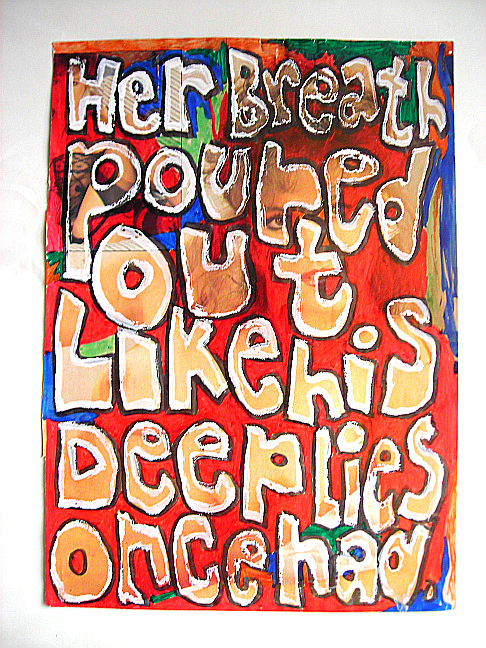 Her Breath
poured
out
Like his
Deep lies
once had